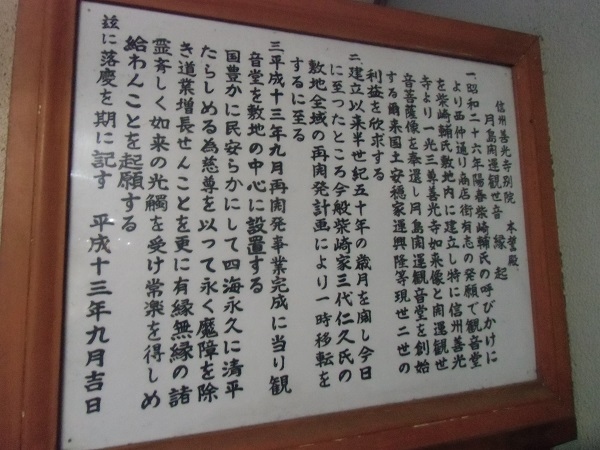 信州善光寺別院 本誓殿
月島開運観世音 縁起
一、昭和二十六年陽春柴崎輔氏の呼びかけに
より西仲通り商店街有志の発願で観音堂
を柴崎輔氏敷地内に建立し特に信州善光
寺より一光三尊善光寺如来像と開運観世
音菩薩像を奉遷し月島開運観音堂を創始
する爾来国土安穏家運興隆等現世二世の
利益を欣求する
二、建立以来半世紀五十年の歳月を閲し今日
に至ったところ今般柴崎家三代仁久氏の
敷地全域の再開発計画により一時移転を
するに至る
三平成十三年九月再開発事業完成に当り観
音堂を敷地の中心に設置する
国豊かに民安らかにして四海永久に清平
たらしめる為慈尊を以って永く魔障を除
き道業増長せんことを更に有縁無縁の諸
霊斉しく如来の光觸を受け常楽を得しめ
給わんことを起願する
玆に落慶を期に記す 平成十三年九月吉日